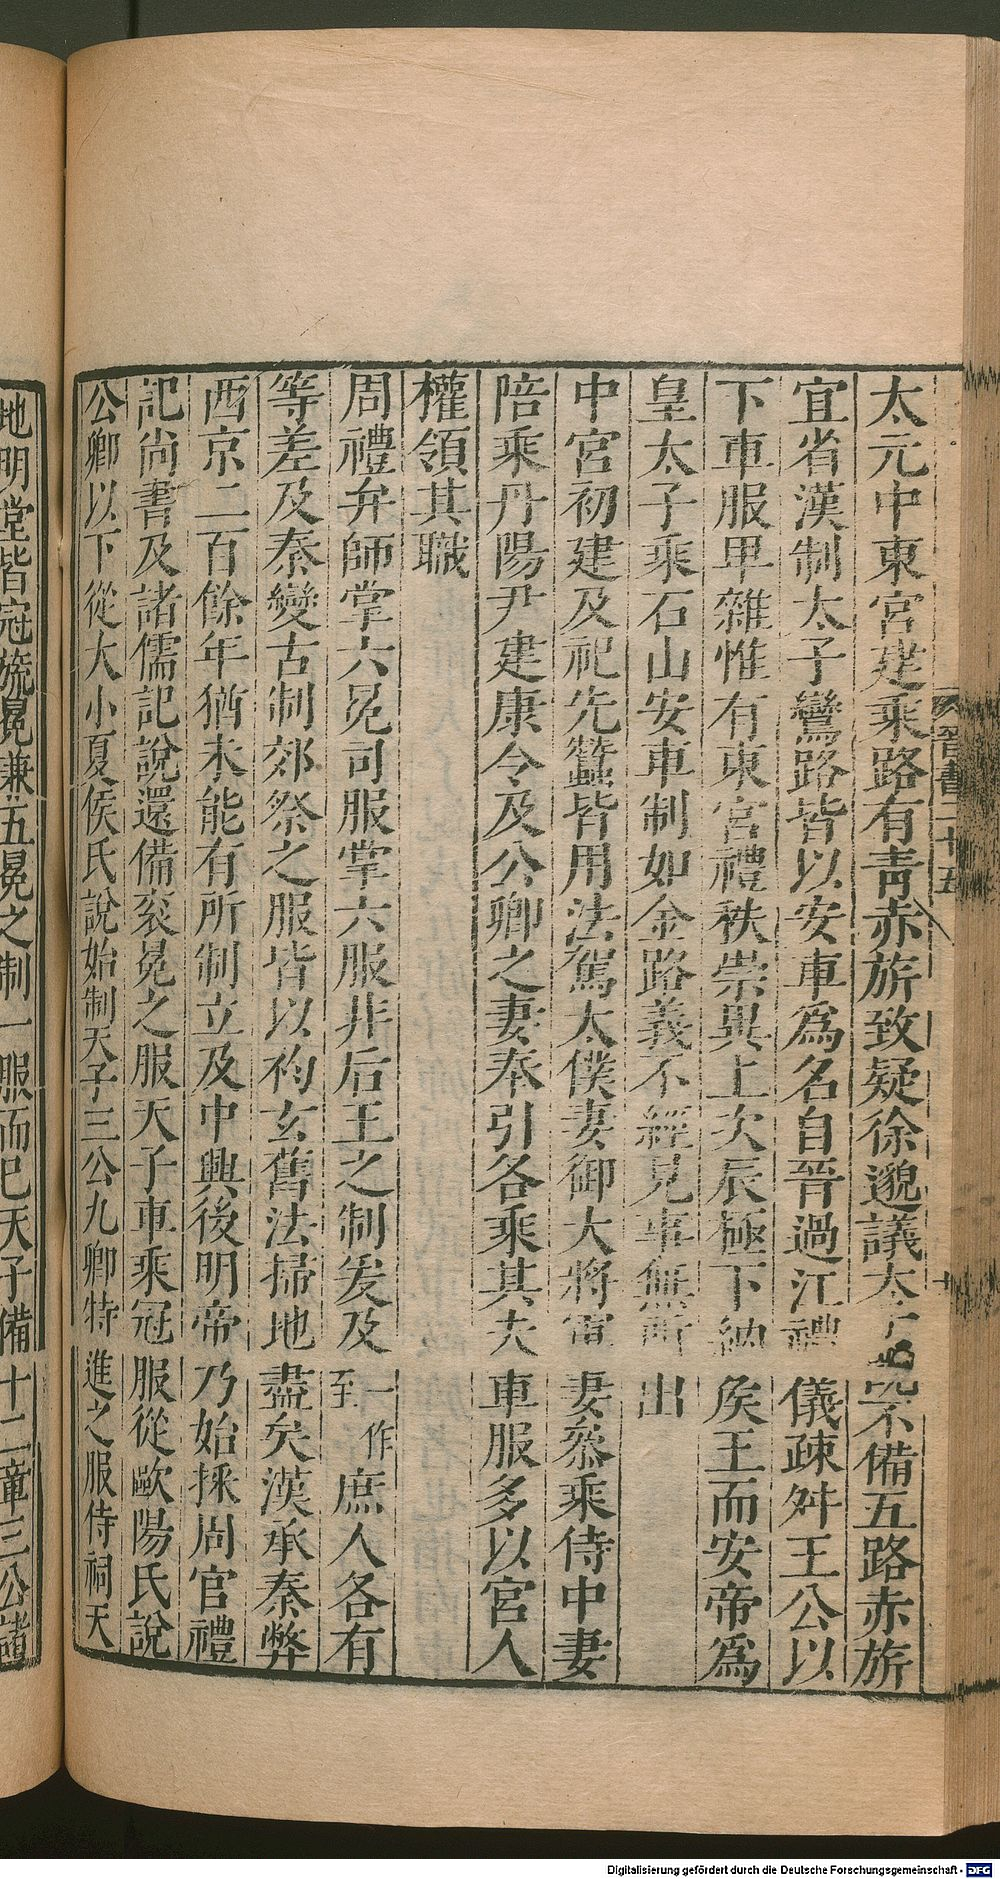 太元中東宮建乘路有青赤旂致疑徐邈議太子旣不備五路赤旂
宜省漢制太子鸞路皆以安車爲名自晉過江禮儀疎舛王公以
下車服卑雜惟有東宮禮秩崇異上次辰極下納矦王而安帝爲
皇太子乘石山安車制如金路義不經見事無所出
中宮初建及祀先蠶皆用法駕太僕妻御大將軍妻叅乘侍中妻
陪乘丹陽尹建康令及公卿之妻奉引各乘其夫車服多以宮人
權領其職
周禮弁師掌六冕司服掌六服非后王之制爰及一作到庶人各有
等差及秦變古制郊祭之服皆以袀玄舊法掃地盡矣漢承秦弊
西京二百餘年猶未能有所制立及中興後明帝乃始採周官禮
記尚書及諸儒記說還備衮冕之服天子車乘冠服從歐陽氏說
公卿以下從大小夏侯氏說始制天子三公九卿特進之服侍祠天
地明堂皆冠旒冕兼五冕之制一服而已天子備十二章三公諸
晉書二十五
十
Digitalisierung gefördert durch die Deutsche Forschungsgemeinschaft - DFG